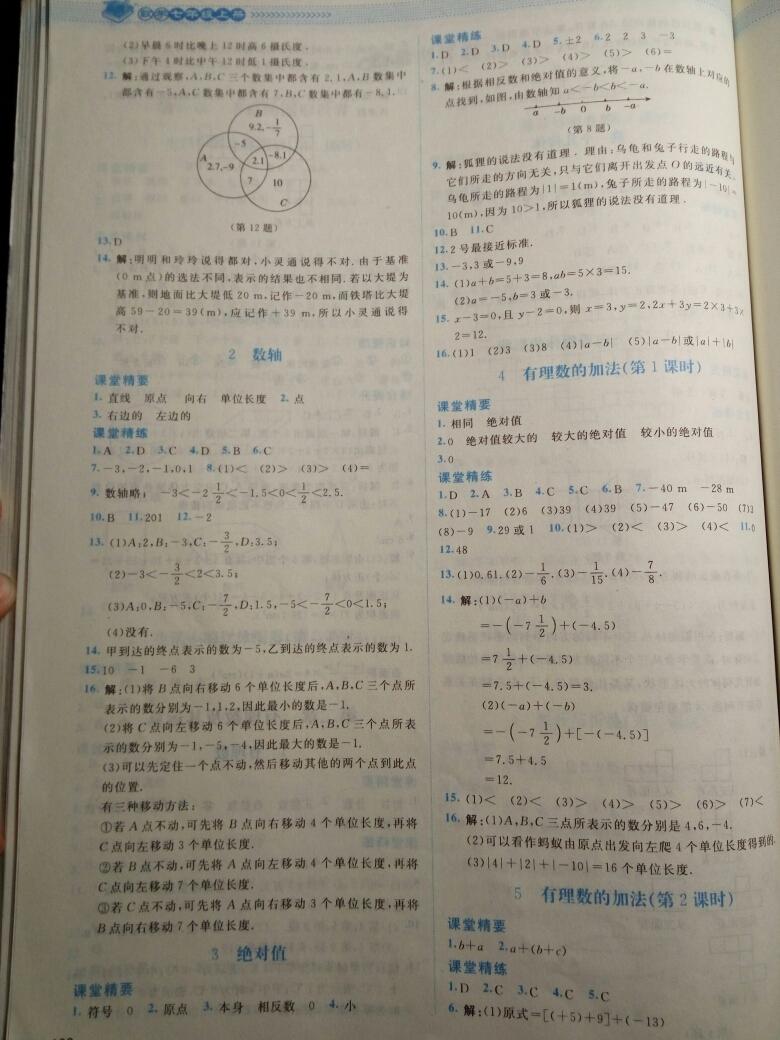 数学七年级上册
(2)早晨6时比晚上12时高6摄氏度.
(3)下午4时比中午12时低1摄氏度.
12. 解:通过观察,A,B,C三个数集中都含有2,1,A,B数集中
都含有-5,A,C数集中都含有7,B,C数集中都有-8.1.
B
9.2,-1/7
-5
A
2.7,-9
2.1
-8.1
7
10
C
(第12题)
13. D
14. 解:明明和玲玲说得都对,小灵通说得不对.由于基准
(0 m点)的选法不同,表示的结果也不相同.若以大堤为
基准,则地面比大堤低20 m,记作-20 m,而铁塔比大堤
高59-20=39(m),应记作+39 m,所以小灵通说得
不对.
2 数轴
课堂精要
1. 直线 原点 向右 单位长度 2. 点
3. 右边的 左边的
课堂精练
1. A 2. D 3. C 4. D 5. B 6. C
7. -3,-2,-1,0,1 8. (1)< (2)> (3)> (4)=
9. 数轴略; -3<-2 1/2<-1.5<0<1/2<2.5.
10. B 11. 201 12. -2
13. (1)A:2,B:-3,C:-3/2,D:3.5;
(2)-3<-3/2<2<3.5;
(3)A:0,B:-5,C:-7/2,D:1.5,-5<-7/2<0<1.5;
(4)没有.
14. 甲到达的终点表示的数为-5,乙到达的终点表示的数为1.
15. 10 -1 -6 3
16. 解:(1)将B点向右移动6个单位长度后,A,B,C三个点所
表示的数分别为-1,1,2,因此最小的数是-1.
(2)将C点向左移动6个单位长度后,A,B,C三个点所表
示的数分别为-1,-5,-4,因此最大的数是-1.
(3)可以先定住一个点不动,然后移动其他的两个点到此点
的位置.
有三种移动方法:
①若A点不动,可先将B点向右移动4个单位长度,再将
C点向左移动3个单位长度.
②若B点不动,可先将A点向左移动4个单位长度,再将
C点向左移动7个单位长度.
③若C点不动,可先将A点向右移动3个单位长度,再将
B点向右移动7个单位长度.
3 绝对值
课堂精要
1. 符号 0 2. 原点 3. 本身 相反数 0 4. 小
课堂精练
1. D 2. D 3. D 4. D 5. ±2 6. 2 2 3 -3
7. (1)< (2)> (3)> (4)> (5)> (6)=
8. 解:根据相反数和绝对值的意义,将-a,-b在数轴上对应的
点找到,如图,由数轴知a<-b<b<-a.
a -b 0 b -a
(第8题)
9. 解:狐狸的说法没有道理.理由:乌龟和兔子行走的路程与
它们所走的方向无关,只与它们离开出发点O的远近有关.
乌龟所走的路程为|1|=1(m),兔子所走的路程为|-10|=
10(m),因为10>1,所以狐狸的说法没有道理.
10. B 11. C
12. 2号最接近标准.
13. -3,3或-9,9
14. (1)a+b=5+3=8,ab=5×3=15.
(2)a=-5,b=3或-3.
15. x-3=0,且y-2=0,则x=3,y=2,2x+3y=2×3+3×
2=12.
16. (1)1 (2)3 (3)8 (4)|a-b| (5)|a-b|或|a|+|b|
4 有理数的加法(第1课时)
课堂精要
1. 相同 绝对值
2. 0 绝对值较大的 较大的绝对值 较小的绝对值
3. 0
课堂精练
1. D 2. A 3. B 4. C 5. C 6. B 7. -40 m -28 m
8. (1)-17 (2)6 (3)39 (4)39 (5)-47 (6)-50 (7)3
(8)-9 9. 29或1 10. (1)> (2)< (3)> (4)< 11. 0
12. 48
13. (1)0.61.(2)-1/6.(3)-1/15.(4)-7/8.
14. 解:(1)(-a)+b
=-(-7 1/2)+(-4.5)
=7 1/2+(-4.5)
=7.5+(-4.5)=3.
(2)(-a)+(-b)
=-(-7 1/2)+[-(-4.5)]
=7.5+4.5
=12.
15. (1)< (2)< (3)> (4)> (5)> (6)> (7)<
16. 解:(1)A,B,C三点所表示的数分别是4,6,-4.
(2)可以看作蚂蚁由原点出发向左爬4个单位长度得到的.
(3)|4|+|2|+|-10|=16个单位长度.
5 有理数的加法(第2课时)
课堂精要
1. b+a 2. a+(b+c)
课堂精练
1. D 2. C 3. C 4. C 5. C
6. 解:(1)原式=[(+5)+9]+(-13)